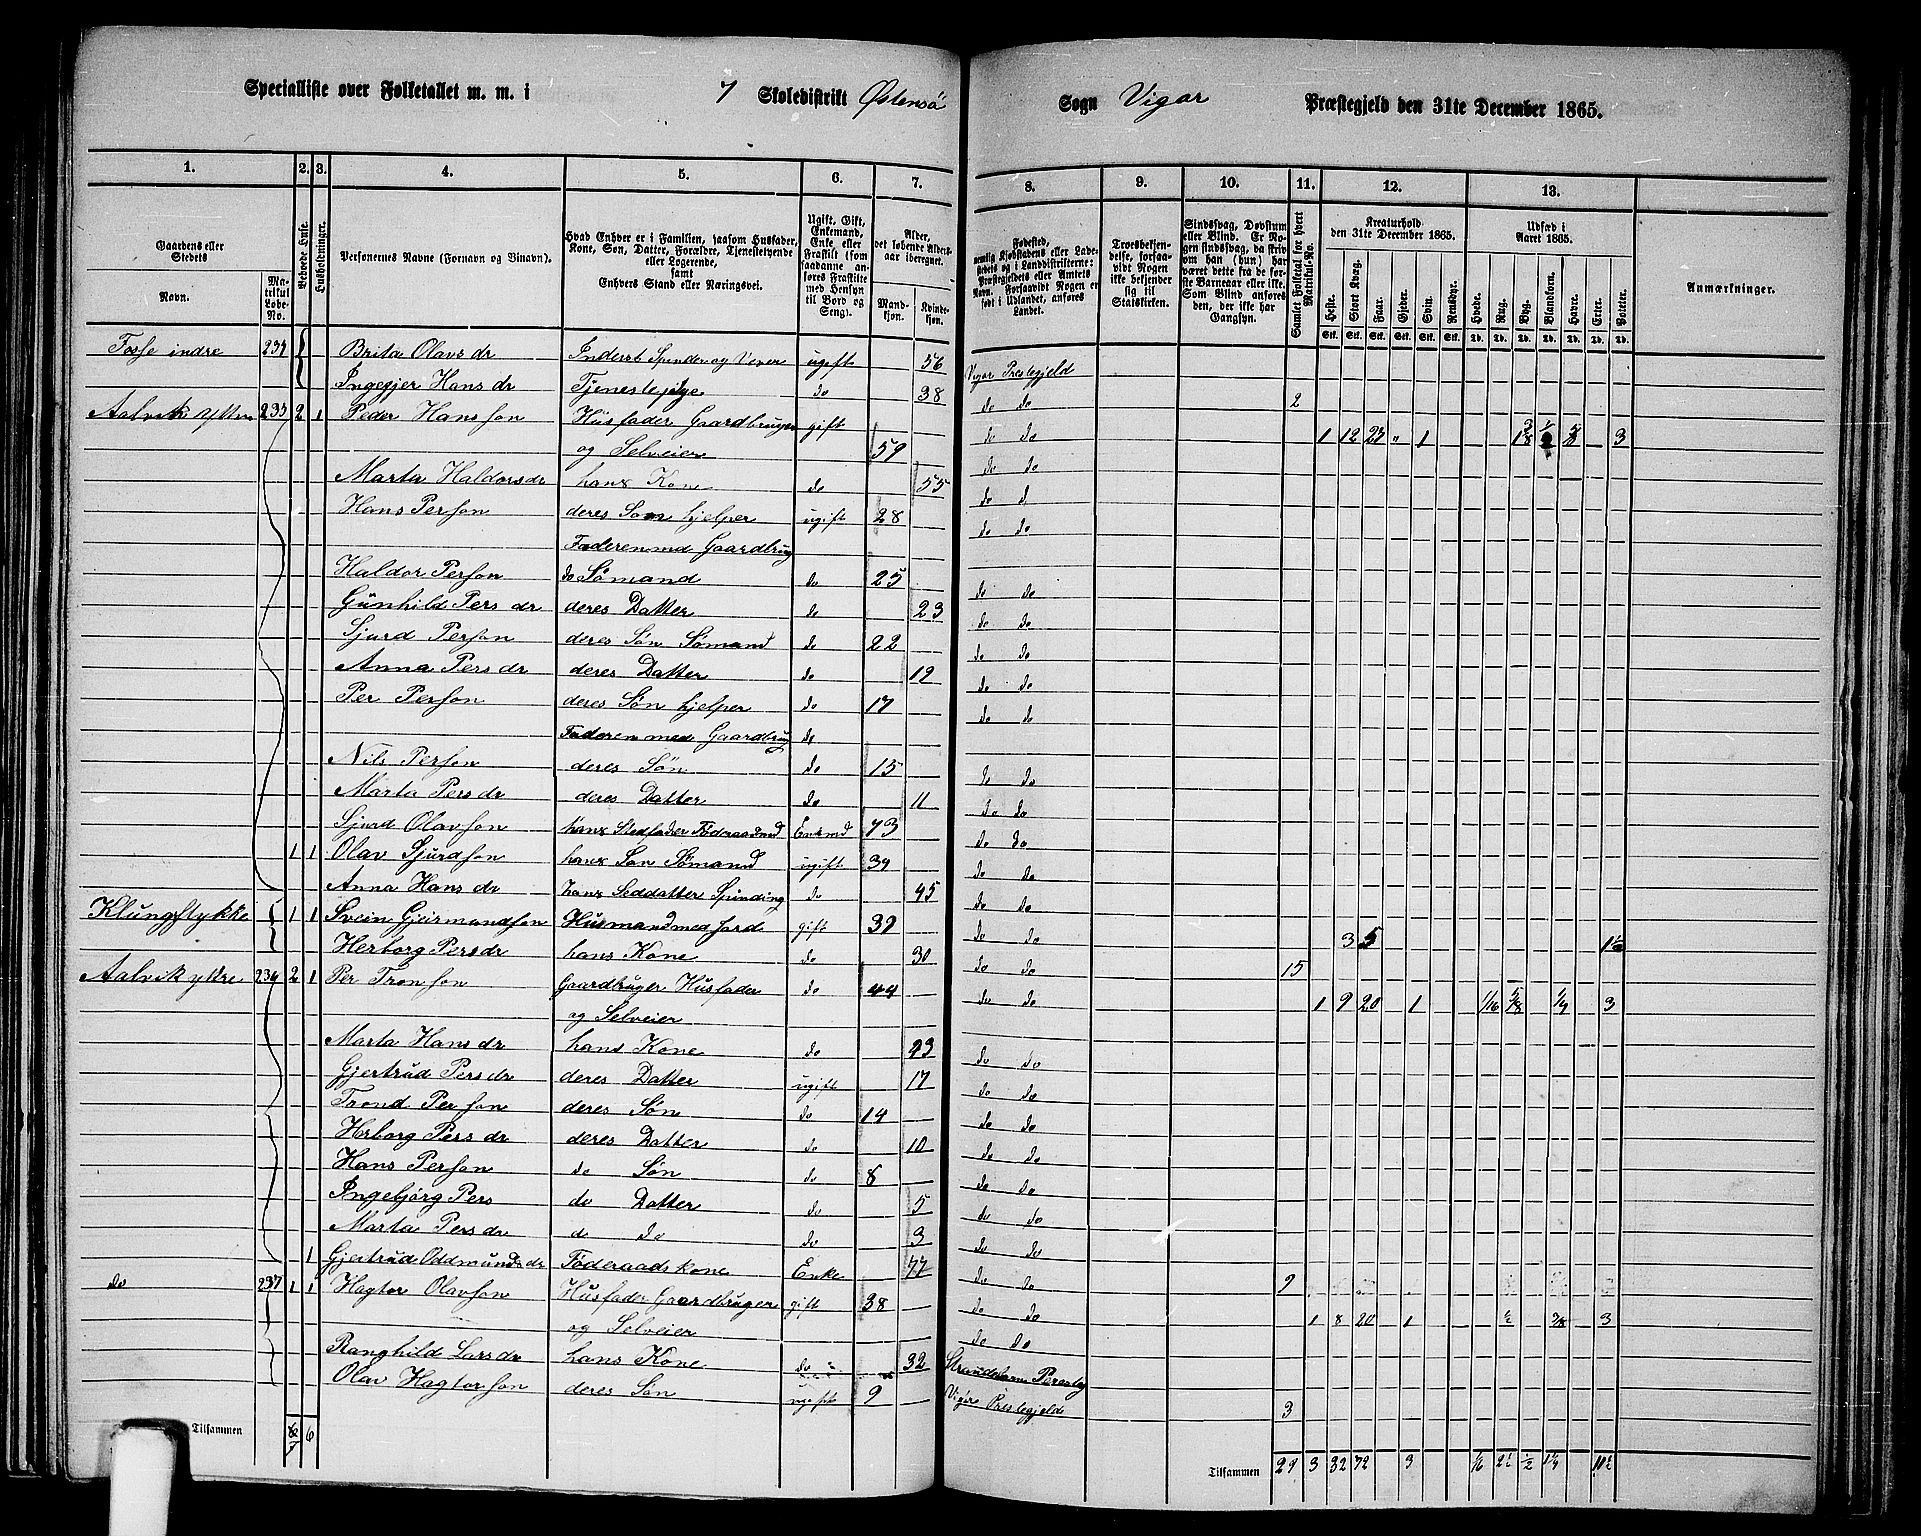 Specialliste over Folketallet m. m. i 7 Skoledistrikt Østensö Sogn Vigør Præstegjeld den 31te December 1865.
1. 2. 3. 4. 5. 6. 7. 8. 9. 10. 11. 12. 13.
Gaardens eller Stedets
Navn.
Matrikul Løbe-No.
Beboede Huse.
Husholdninger.
Personernes Navne (Fornavn og Tilnavn).
Hvad Enhver er i Familien, saasom Husfader, Kone, Søn, Datter, Forældre, Tjenestetyende eller Logerende, samt Enhvers Stand eller Næringsvei.
Ugift, Gift, Enkemand, Enke eller Fraskilt (som saadanne anføres Fraskilte med Hensyn til Bord og Seng).
Alder, det løbende Aldersaar iberegnet.
Mandkjøn.
Kvindekjøn.
Fødested, nemlig Kjøbstadens eller Ladestedets og i Landdistrikterne: Præstegjeldets eller Amtets Navn. Forsaavidt Nogen er født i Udlandet, anføres Landet.
Troesbekjendelse, forsaavidt Nogen ikke bekjender sig til Statskirken.
Sindssvag, Døvstum eller Blind. Er Nogen sindssvag, da skrives om han (hun) har været dette fra de første Barneaar eller ikke. Som Blind anføres den, der ikke har Gangsyn.
Samlet Folketal for hvert Matrikul-No.
Kreaturhold den 31te December 1865.
Heste. Stort Kvæg. Faar. Gjeder. Svin. Rensdyr.
Stk. Stk. Stk. Stk. Stk. Stk.
Udsæd i Aaret 1865.
Hvede. Rug. Byg. Blandkorn. Havre. Erter. Poteter.
Td. Td. Td. Td. Td. Td. Td.
Anmærkninger.
Fosse indre 234 Brita Olavs dr Inderst Spinder og Vever ugift 56 Vigør Prestegjeld
Ingegjer Hans dr Tjenestepige do 38 do do 2
Aalvik yttre 235 2 1 Peder Hansson Husfader Gaardbruger gift do do 1 12 23 " 1 3
og Selveier 59 do do
Marta Haldorsdr hans Kone do 55 do d
Hans Person deres Søn hjelper ugift 28 do do
Faderen med Gaardbrug
Haldor Person do Sømand do 25 do do
Gunhild Pers dr deres Datter do 23 do do
Sjurd Person deres Søn Sømand do 22 do do
Anna Pers dr deres Datter do 19 do do
Per Person deres Søn hjelper do 17 do do
Faderen med Gaardbrug do
Nils Person deres Søn do 15 do do
Marta Pers dr deres Datter do 11 do do
Sjurd Olavson hans Stedfader Föderaadmd Enkmd 73 do do
1 1 Olav Sjurdson hans Søn Sømand ugift 39 do do
Anna Hans dr hans Seddatter Spinding do 45 do do
Klungstykke 1 1 Svein Gjeirmundson Husmand med Jord gift 39 do do 3 5 1½
Herborg Pers dr hans Kone do 30 do do 15
Aalvik ykre 236 2 1 Per Tronson Gaardbruger Husfader do 44 do do 1 9 20 1 1/16 5/8 1/4 3
og Selveier
Marta Hans dr hans Kone do 43 do do
Gjertrud Pers dr deres Datter ugift 17 do do
Trond Person deres Søn do 14 do do
Herborg Pers dr deres Datter do 10 do do
Hans Person do Søn do 8 do do
Ingebjörg Pers do Datter do 5 do do
Marta Pers dr do do do 3 do do
1 Gjertrud Oddmunds dr Föderaadskone Enke 77 do do 9
do 237 1 1 Hagtor Olavson Husfader Gaardbruger gift 38 do do 1 8 20 1 ½ 3/8 3
og Selveier do do
Ranghild Lars dr hans Kone do 32
Olav Hagtorson deres Søn ugift 9 Vigør Prestegjeld 3
Tilsammen 6
Tilsammen 29 3 32 72 3 ½ 1¼ 11½